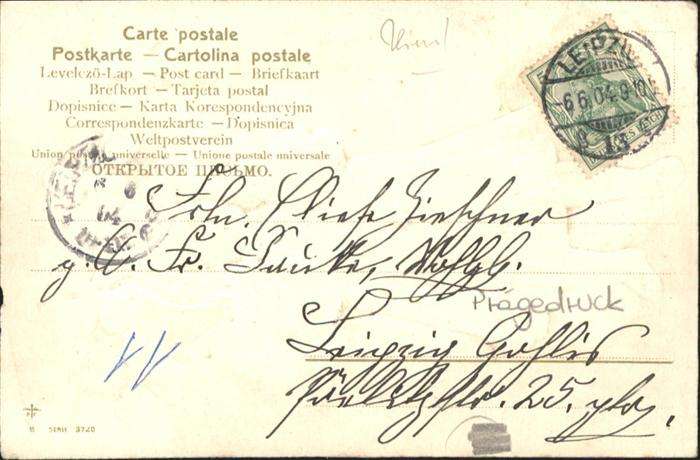 Carte postale
Postkarte — Cartolina postale
Levelező-Lap — Post card — Briefkaart
Brefkort — Tarjeta postal
Dopisnice — Karta Korespondencyjna
Correspondenzkarte — Dopisnica
Weltpostverein
Union postale universelle — Unione postale universale
ОТКРЫТОЕ ПИСЬМО.
LEIPZIG
6.6.04.9-10
REICH
Frln. Liesje
p. A. Fr. Taute, Wohlgb.
Prägedruck
Leipzig Gohlis
25. ptr.
SERIE 3720